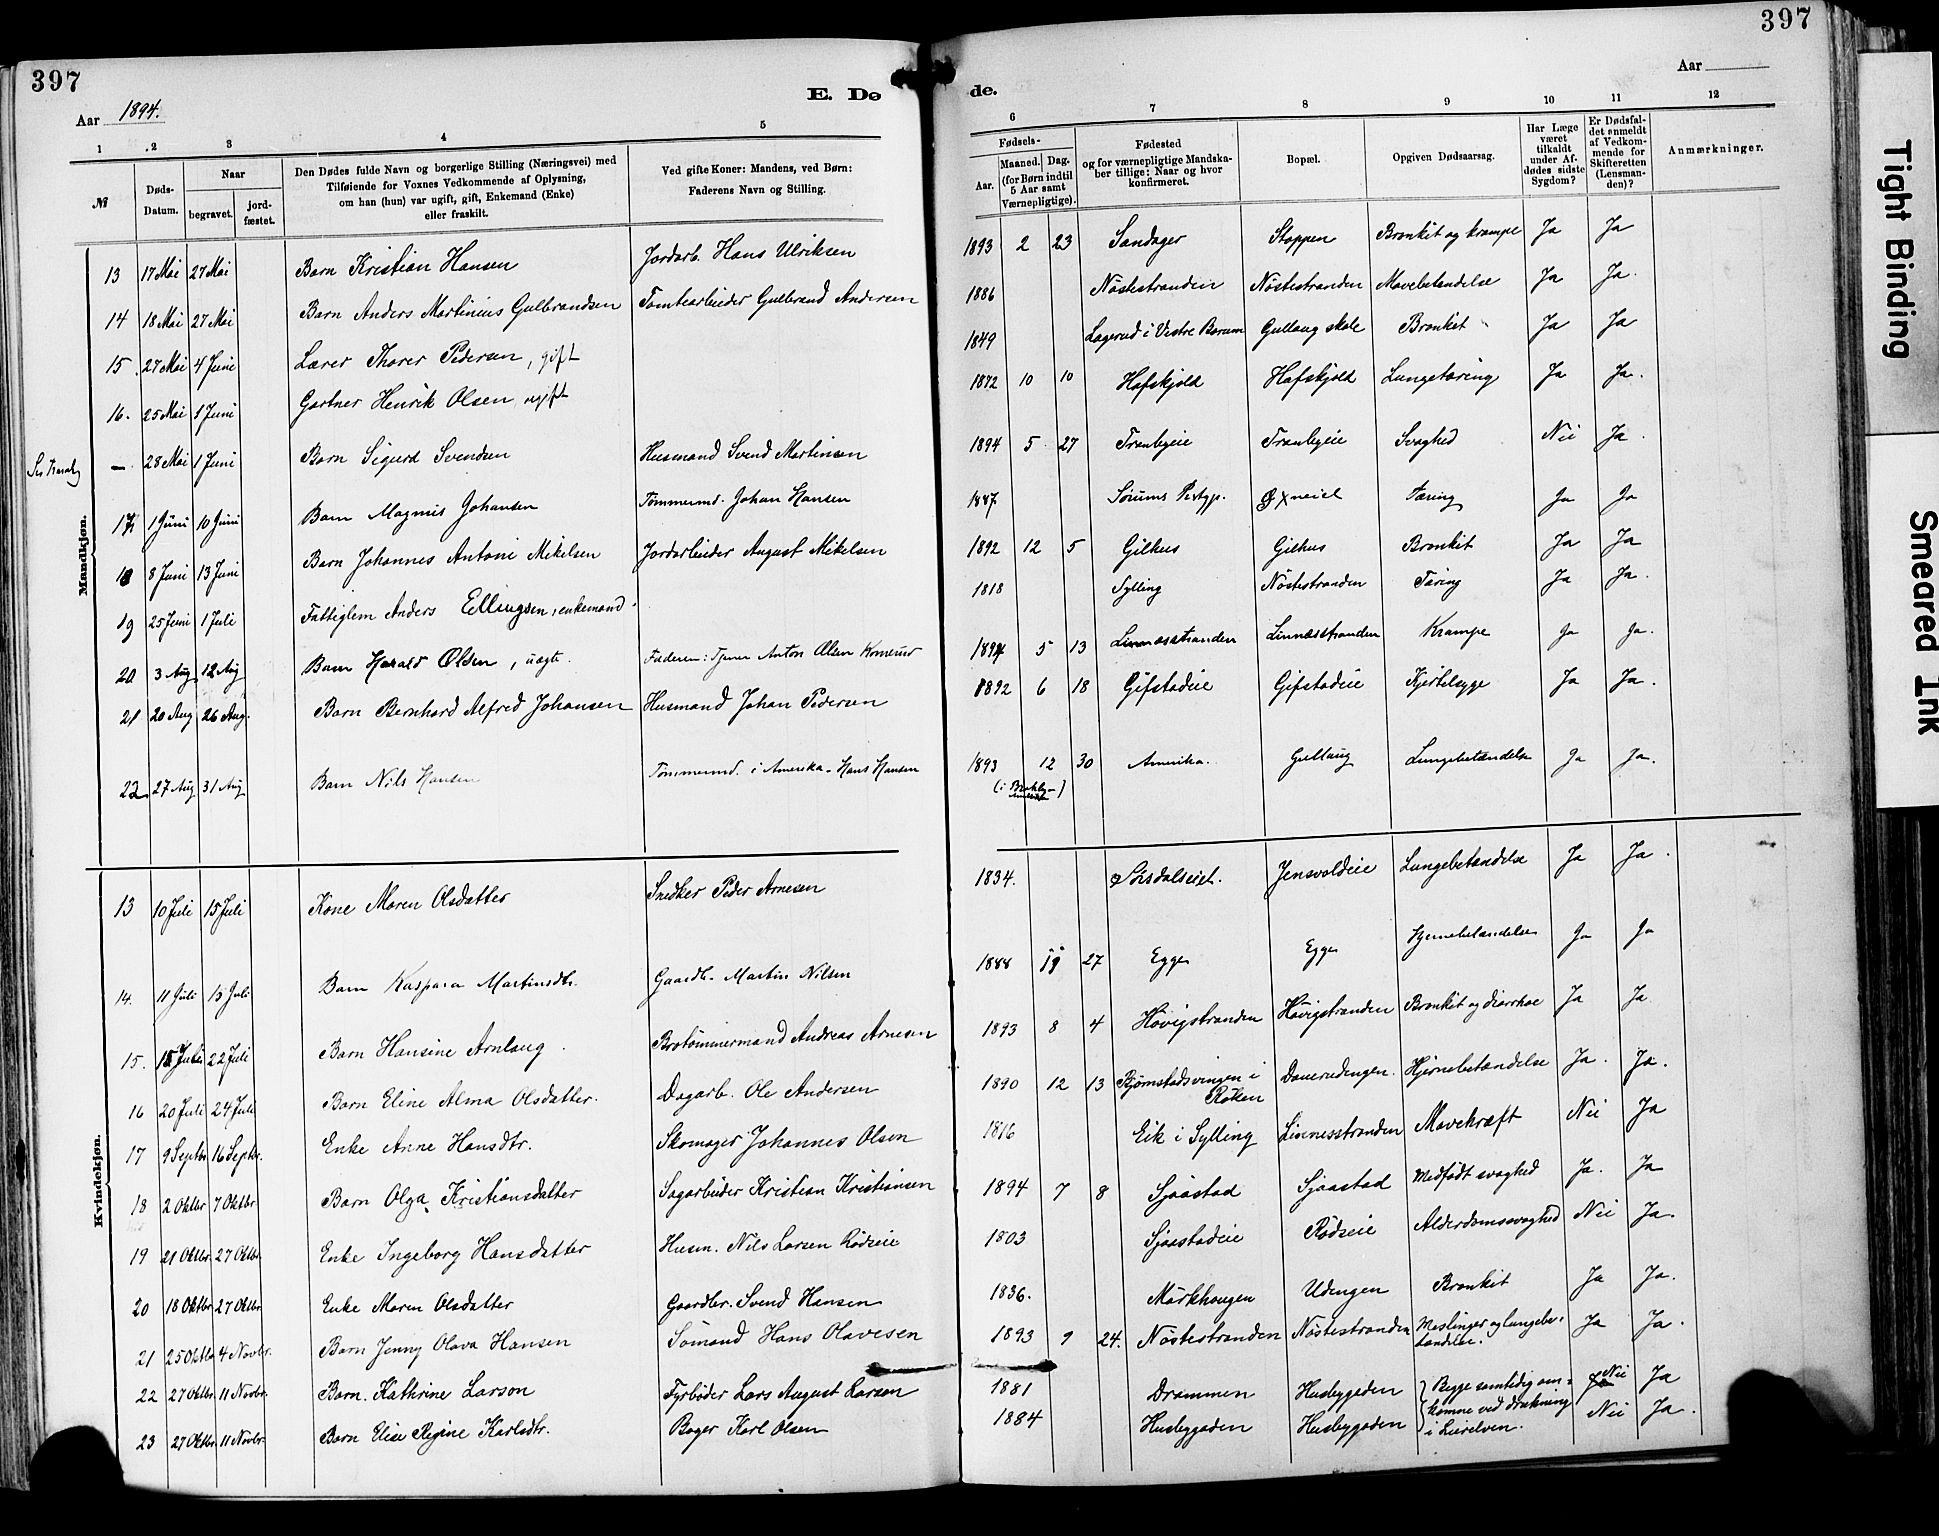 397
397
Aar 1894.
E. Dø
de.
Aar
1 2 3 4 5
6 7 8 9 10 11 12
№
Døds-Datum.
Naar
begravet.
jord-fæstet.
Den Dødes fulde Navn og borgerlige Stilling (Næringsvei) med
Tilføiende for Voxnes Vedkommende af Oplysning,
om han (hun) var ugift, gift, Enkemand (Enke)
eller fraskilt.
Ved gifte Koner: Mandens, ved Børn:
Faderens Navn og Stilling.
Fødsels-
Aar.
Maaned. Dag.
(for Børn indtil
5 Aar samt
Værnepligtige).
Fødested
og for værnepligtige Mandska-
ber tillige: Naar og hvor
konfirmeret.
Bopæl.
Opgiven Dødsaarsag.
Har Læge
været
tilkaldt
under Af-
dødes sidste
Sygdom?
Er Dødsfal-
det anmeldt
af Vedkom-
mende for
Skifteretten
(Lensman-
den)?
Anmærkninger.
Mandkjøn.
13 17 Mai 27 Mai Barn Kristian Hansen Jordarb. Hans Ulriksen 1893 2 23 Sandager Stoppen Bronkit og krampe Ja Ja
14 18 Mai 27 Mai Barn Anders Martinius Gulbrandsen Tomtearbeider Gulbrand Andersen 1886 Nöstestranden Nöstestranden Mavebetændelse Ja Ja.
15. 27 Mai 4 Juni Lærer Thorer Pedersen, gift 1849 Lagerud i Vestre Bærum Gullaug skole Bronkit Ja Ja
16. 25 Mai 1 Juni Gartner Henrik Olsen, ugift 1872 10 10 Hafskjold Hafskjold Lungetæring Ja Ja.
— 28 Mai 1 Juni Barn Sigurd Svendsen Husmand Svend Martinsen 1894 5 27 Tranbyeie Tranbyeie Svaghed Nei Ja.
17 1 Juni 10 Juni Barn Magnus Johansen Tømmermd. Johan Hansen 1887 Sörums Tæring Ja Ja
18 8 Juni 13 Juni Barn Johannes Antoni Mikelsen Jordarbeider August Mikelsen 1892 12 5 Gilhus Gilhus Bronkit Ja Ja
19 25 Juni 1 Juli Fattiglem Anders Ellingsen, enkemand. 1818 Sylling Nöstestranden Tæring Ja Ja.
20 3 Aug 12 Aug Barn Harald Olsen, uægte. Faderen: Tjener Anton Olsen Komerud 1894 5 13 Linnæsstranden Linnæsstranden Krampe Ja Ja.
21 20 Aug 26 Aug. Barn Bernhard Alfred Johansen Husmand Johan Pedersen 1892 6 18 Gifstadeie Gifstadeie Kjertelsyge Ja Ja.
22 27 Aug 31 Aug Barn Nils Hansen Tømmermd. i Amerika - Hans Hansen 1893 12 30 Amerika. Gullaug Lungebetændelse Ja Ja.
Kvindekjøn.
13 10 Juli 15 Juli Kone Maren Olsdatter Snedker Peder Arnesen 1834. Sörsdalseiet. Jensvoldeie Lungebetændelse Ja Ja.
14. 11 Juli 15 Juli Barn Kaspara Martinsdtr. Gaardb. Martin Nilsen 1888 11 27 Egge Egge Hjernebetændelse Ja Ja
15. 15 Juli 22 Juli Barn Hansine Arnlaug. Brotömmermand Andreas Arnesen 1893 8 4 Hövigstranden Hövigstranden Bronkit og diarrhoe Ja Ja
16 20 Juli 24 Juli Barn Eline Alma Olsdatter. Dagarb. Ole Andersen 1890 12 13 Björnstadsvingen i Röken Dauerudengen. Hjernebetændelse Ja. Ja.
17 9 Septbr 16 Septbr. Enke Anne Hansdtr. Skomager Johannes Olsen 1816 Eik i Sylling Linnesstranden Mavekræft Nei Ja
18 2 Oktbr 7 Oktbr Barn Olga Kristiansdatter Sagarbeider Kristian Kristiansen 1894 7 8 Sjaastad Sjaastad Medfödt svaghed Ja. Ja
19 21 Oktbr. 27 Oktbr. Enke Ingeborg Hansdatter Husm. Nils Larsen Rödseie 1803 Sjaastadeie Rödseie Alderdomssvaghed Nei Ja.
20 18 Oktbr 27 Oktbr. Enke Maren Olsdatter Gaardbr. Svend Hansen 1836. Mörkhaugen Udengen Bronkit Ja Ja.
21 25 Oktbr 4 Novbr. Barn Jenny Olava Hansen Sömand Hans Olavesen 1893 9 24. Nöstestranden Nöstestranden Meslinger og lungebe-tændelse. Ja Ja.
22 27 Oktbr. 11 Novbr. Barn. Kathrine Larson Fyrböder Lars August Larson 1881 Drammen Husbygaden Begge samtidig om- Nei Ja
23 27 Oktbr. 11 Novbr. Barn Elise Regine Karlsdtr. Bager Karl Olsen 1884 Husbygaden Husbygaden komne ved drukning i Lierelven. Nei Ja.
Tight Binding
Smeared Ink